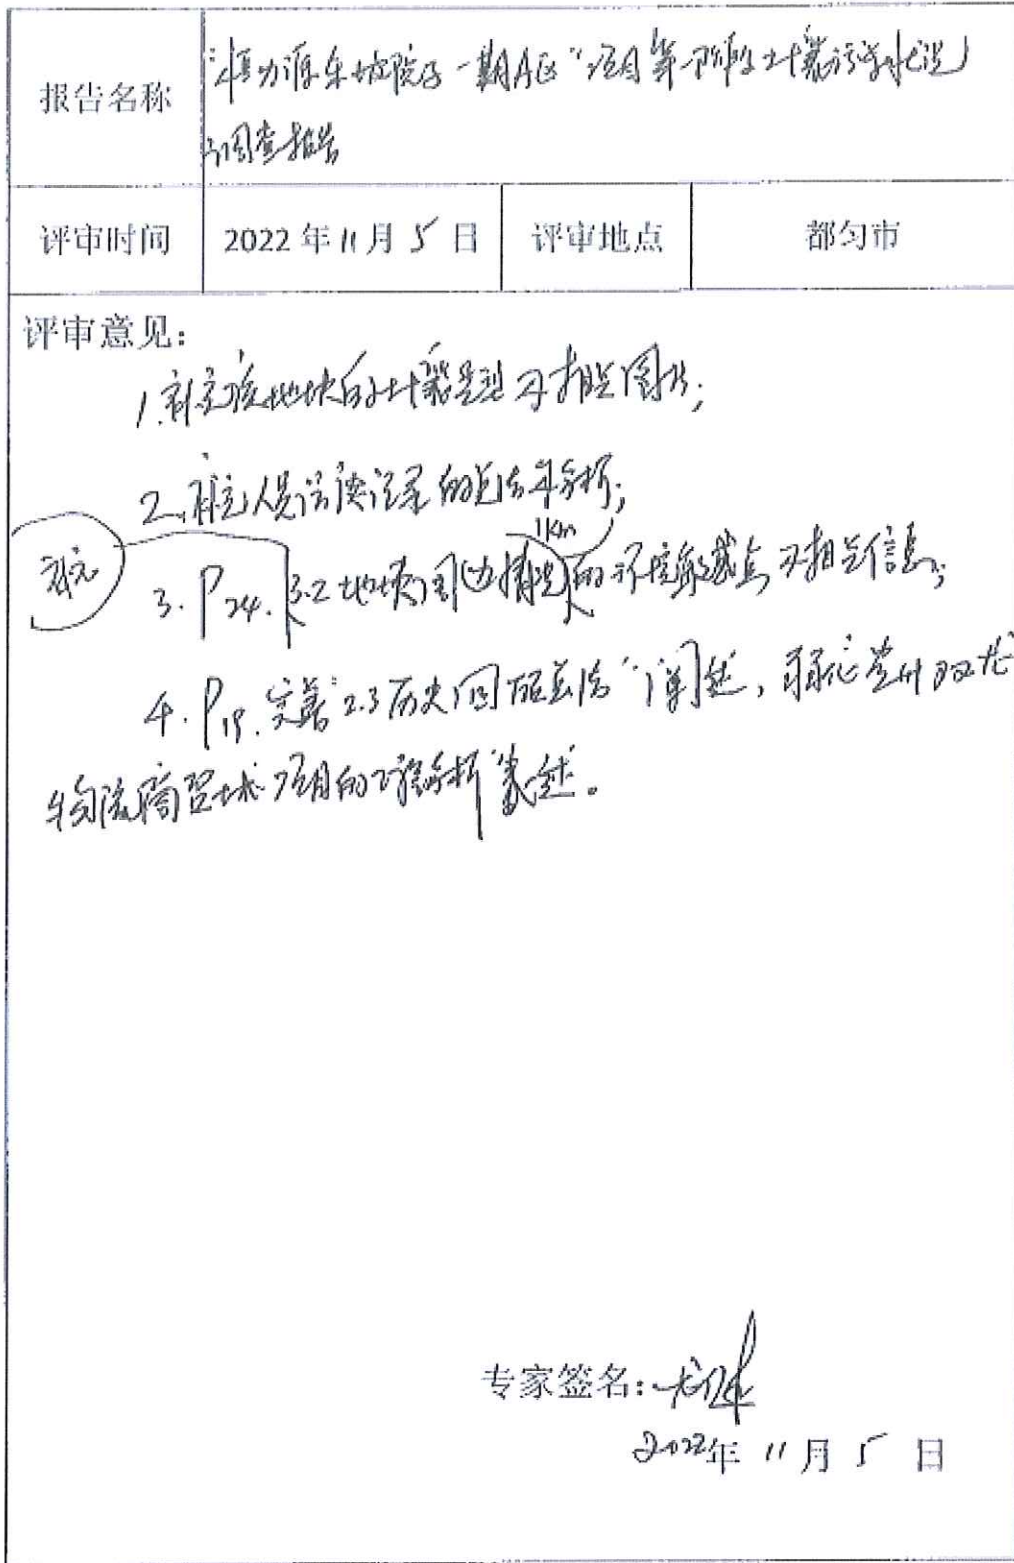 报告名称
“恒力源东坡院子一期A区”项目第一阶段土壤污染状况
调查报告
评审时间 2022年11月5日 评审地点 都匀市
评审意见：
1.补充该地块的土壤类型及相关图片；
2.补充人员访谈记录的总结与分析；
1km
补充 3.P24.3.2地块周边情况的环境敏感点及相关信息；
4.P19.完善“2.3历史回顾总结”阐述，强化贵州双龙
物流商贸城项目的“分析”叙述。
专家签名：
2022年11月5日